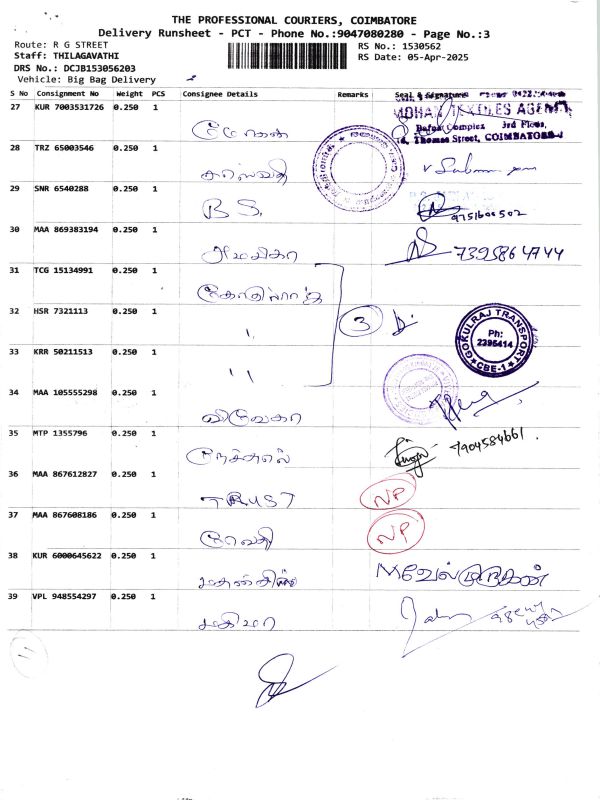 THE PROFESSIONAL COURIERS, COIMBATORE
Delivery Runsheet - PCT - Phone No.:9047080280 - Page No.:3
Route: R G STREET
RS No.: 1530562
Staff: THILAGAVATHI
RS Date: 05-Apr-2025
DRS No.: DCJB153056203
Vehicle: Big Bag Delivery
S No Consignment No Weight PCS Consignee Details Remarks Seal & Signature
27 KUR 7003531726 0.250 1
MOHAN TEXTILES AGENCY
Complex 3rd Floor,
Thomas Street, COIMBATORE-1
28 TRZ 65003546 0.250 1 சரஸ்வதி
29 SNR 6540288 0.250 1 B S. 9751600502
30 MAA 869383194 0.250 1 7395864744
31 TCG 15134991 0.250 1
32 HSR 7321113 0.250 1 3
GOKULRAJ TRANSPORT
Ph:
2395414
CBE-1
33 KRR 50211513 0.250 1 11
34 MAA 105555298 0.250 1 விவேகா
35 MTP 1355796 0.250 1 7904584661.
36 MAA 867612827 0.250 1 TRUST NP
37 MAA 867608186 0.250 1 ரேவதி NP
38 KUR 6000645622 0.250 1 M வேல்முருகன்
39 VPL 948554297 0.250 1 மகிமா
11